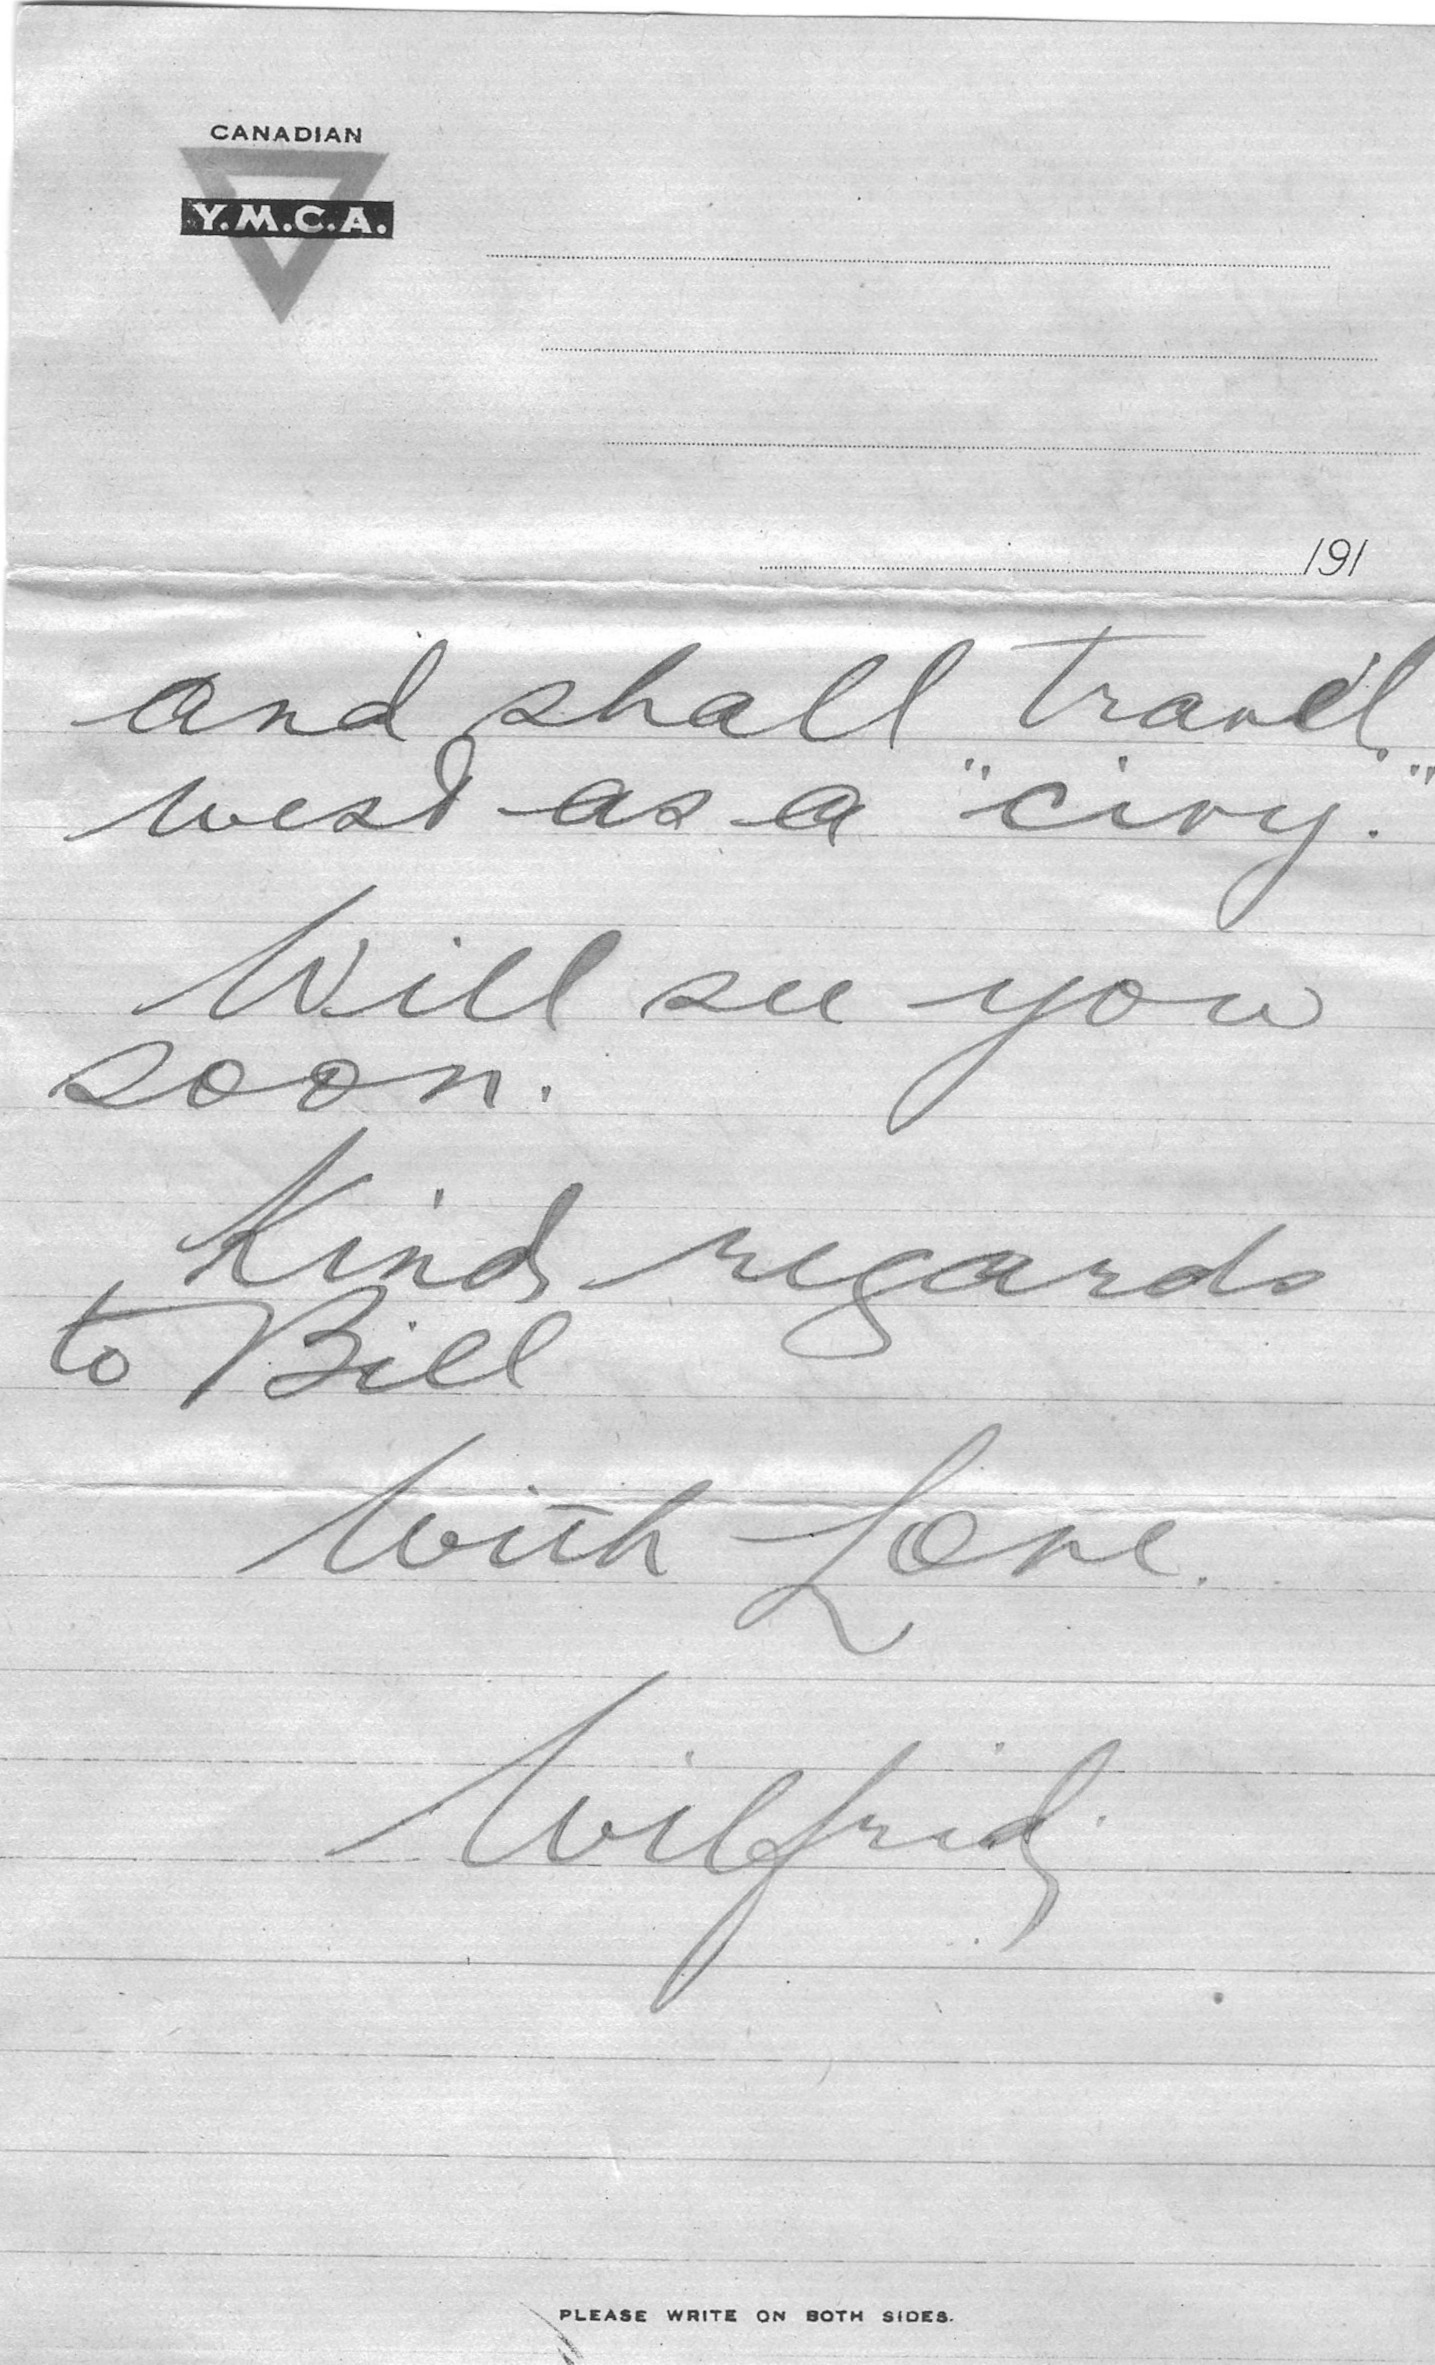 CANADIAN
Y.M.C.A.
191
and shall travel
west as a "civy."
Will see you
soon.
Kind regards
to Bill
With Love.
Wilfrid.
PLEASE WRITE ON BOTH SIDES.